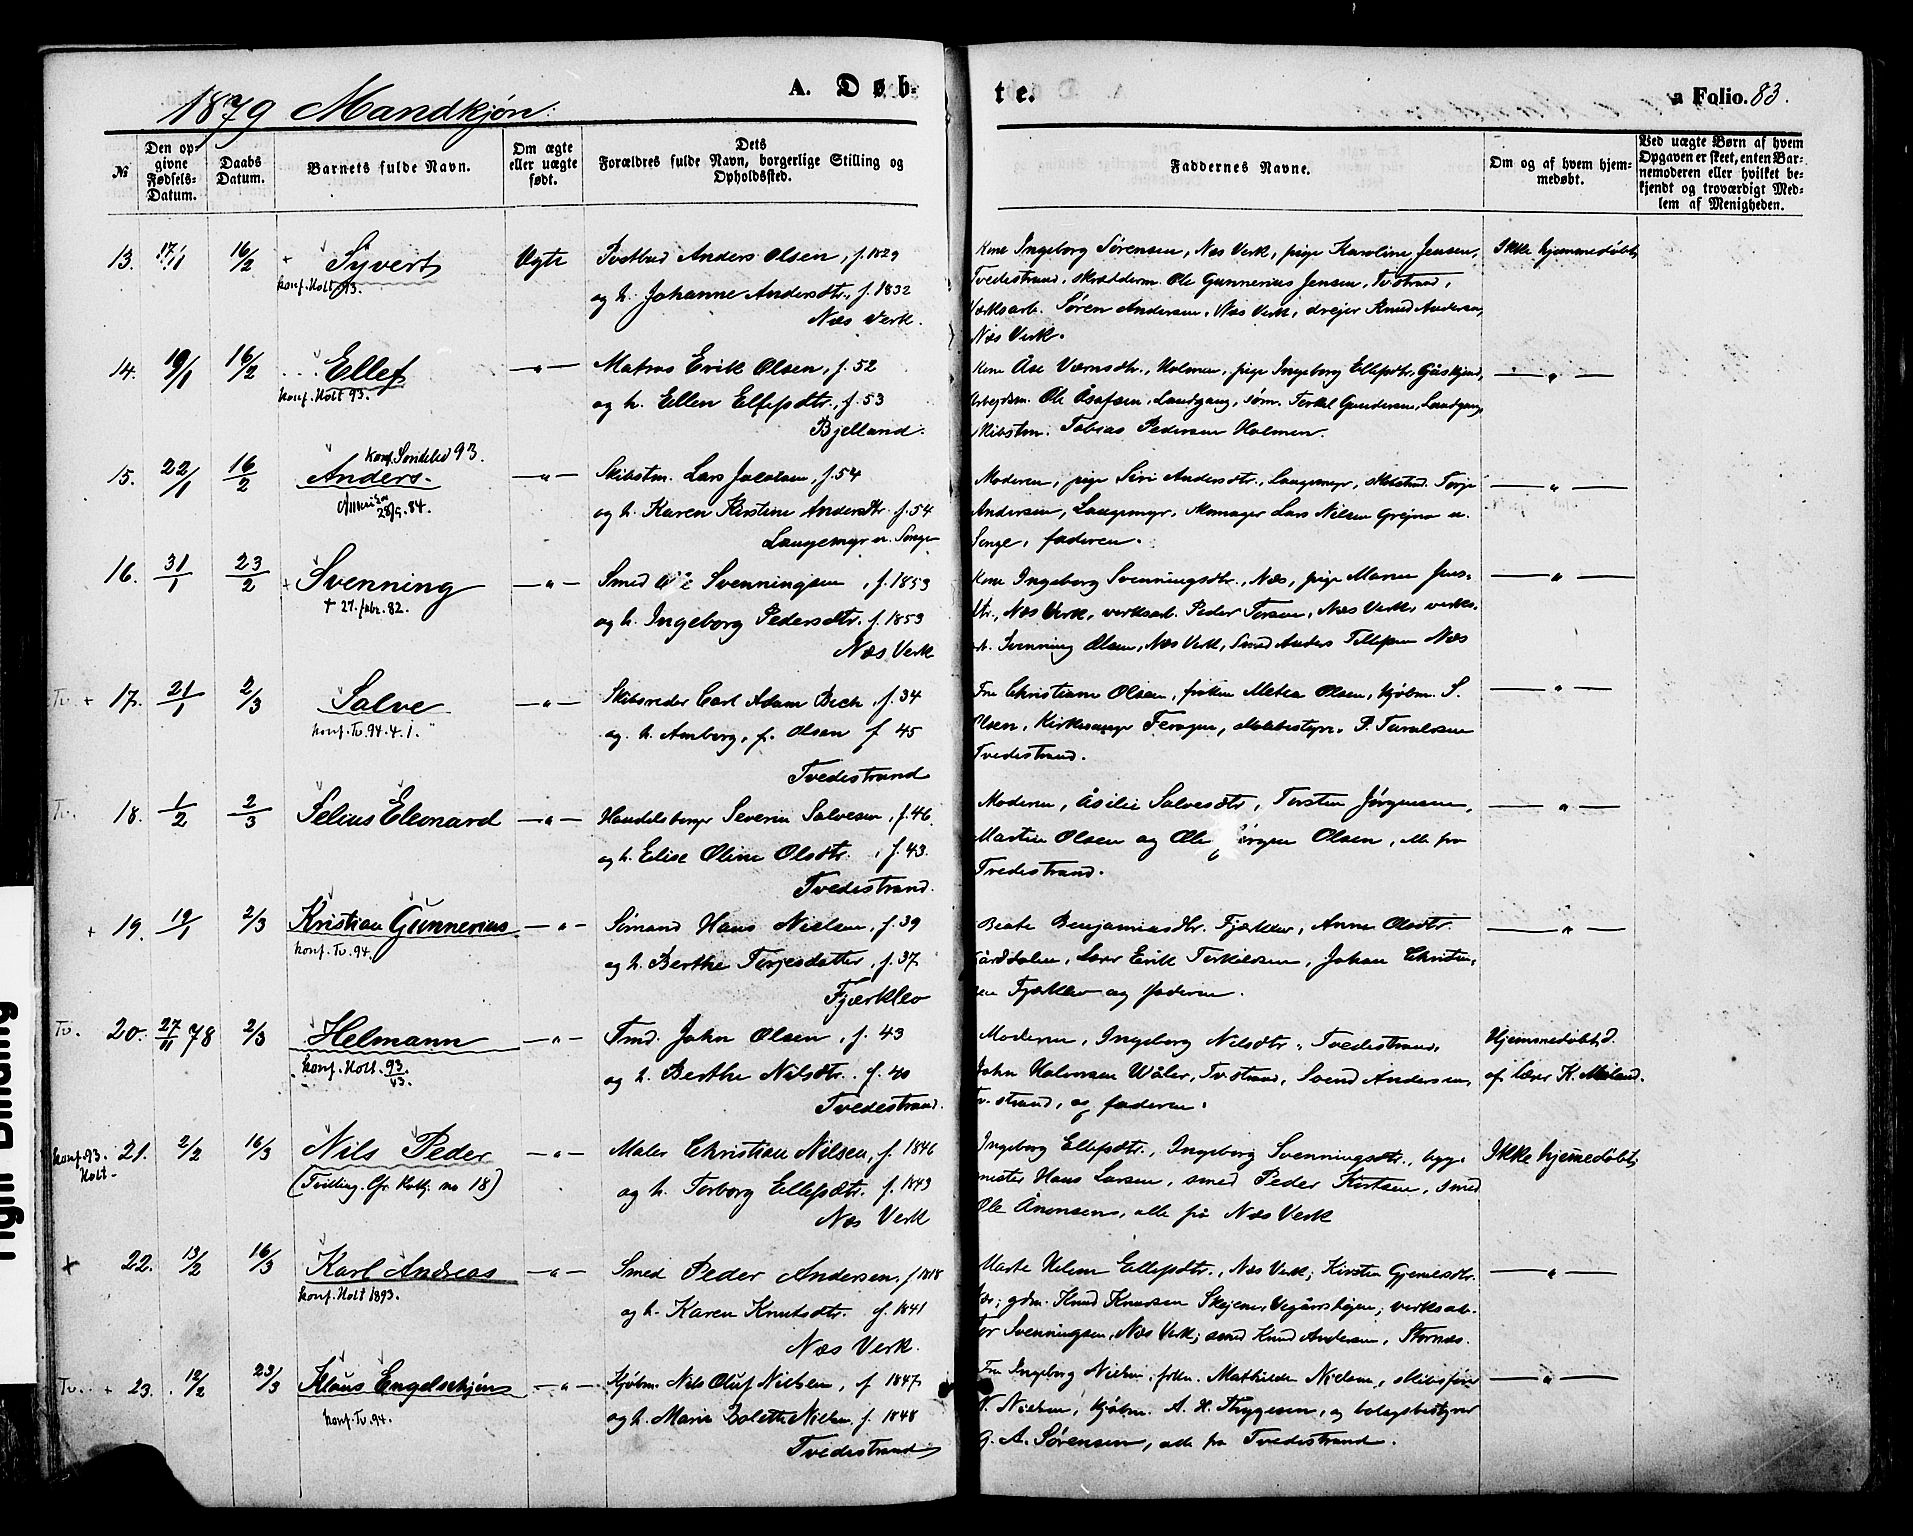 1879 Mandkjøn.
A. Døb-
te.
a Folio. 83.
№
Den op-
givne
Fødsels-
Datum.
Daabs
Datum.
Barnets fulde Navn.
Om ægte
eller uægte
født.
Dets
Forældres fulde Navn, borgerlige Stilling og
Opholdssted.
Faddernes Navne.
Om og af hvem hjem-
medøbt.
Ved uægte Børn af hvem
Opgaven er skeet, enten Bar-
nemoderen eller hvilket be-
kjendt og troværdigt Med-
lem af Menigheden.
13. 17/1 16/2 Syvert Ægte Postbud Anders Olsen, f. 1829
konf. Holt 93.
og h. Johanne Andersdtr., f. 1832
Næs Verk.
Kone Ingeborg Sørensen, Næs Verk, pige Karoline Jensen,
Tvedestrand, skrædderm. Ole Gunnerius Jensen, Tv.strand,
Værksarb. Søren Andersen, Næs Verk, drejer Knud Andersen,
Næs Verk.
Ikke hjemmedøbt
14. 19/1 16/2 Ellef — " — Matros Erik Olsen, f. 52
konf. Holt 93.
og h. Ellen Ellefsdtr., f. 53
Bjelland.
Kone Åse Værnsdtr., Holmen, pige Ingeborg Ellefsdtr.,
Arbejdsm. Ole Åsafsen, Landgang, søm. Terkel Gundersen, Landgang,
Skibstm. Tobias Pedersen Holmen.
— " —
15. 22/1 16/2 Anders. — " — Skibstm. Lars Jacobsen, f. 54
konf. Søndeled 93.
28/9. 84.
og h. Karen Kirstine Andersdtr. f. 54
Laugemyr v. Songe
Moderen, pige Siri Andersdtr., Laugemyr, Torje
Andersen, Laugemyr, Lars Nilsen
Songe, faderen.
— " —
16. 31/1 23/2 Svenning — " — Smed Ole Svenningsen, f. 1853
+ 27. febr. 82.
og h. Ingeborg Pedersdtr. f. 1853
Næs Verk
Kone Ingeborg Svenningsdtr., Næs, pige Maren Jens-
dtr., Næs Verk, verksarb. Peder Torsen, Næs Verk, verks-
arb. Svenning Olsen, Næs Verk, Smed Anders Tellefsen Næs
— " —
Tv. + 17. 21/1 2/3 Salve — " — Skibsreder Carl Adam Bech, f. 34
konf. Tv. 94. 4. 1. "
og h. Amborg, f. Olsen f 45
Tvedestrand
Fru Christiane Olsen, frøken Metea Olsen, kjøbm. S.
Olsen, Kirkesanger Feragen, P.
Tvedestrand.
— " —
Tv. 18. 1/2 2/3 Selius Eleonard — " — Handelsborger Severin Salvesen, f. 46.
og h. Elise Oline Olsdtr., f. 43.
Tvedestrand.
Moderen, Åsilie Salvesdtr, Torsten Jørgensen,
Martin Olsen og Ole Jørgen Olsen, alle fra
Tvedestrand.
— " —
+ 19. 19/1 2/3 Kristian Gunnerius — " — Sømand Hans Nielsen, f. 39
konf. Tv. 94.
og h. Berthe Terjesdatter, f. 37
Fjærklev
Beate Benjaminsdtr. Fjærklev, Anne Olsdtr.
Gårddalen, Lærer Erik Terkelsen, Johan Christen-
sen Fjærklev og faderen.
— " —
Tv. 20. 27/11 78 2/3 Helmann — " — Tmd. John Olsen, f. 43
konf. Holt. 93/43.
og h. Berthe Nilsdtr. f. 40
Tvedestrand.
Moderen, Ingeborg Nilsdtr., Tvedestrand,
John Halvorsen Wåler, Tv.strand, Svend Andersen,
Tv.strand, og faderen.
Hjemmedøbt
af lærer K. Møland.
konf. 93. Holt. 21. 2/2 16/3 Nils Peder — " — Maler Christian Nilsen, f. 1846
(Tvilling. Cfr. Kvkj. no 18)
og h. Torborg Ellefsdtr. f. 1843
Næs Verk
Ingeborg Ellefsdtr., Ingeborg Svenningsdtr., bygg-
mester Hans Larsen, smed Peder Knutsen, smed
Ole Ånonsen, alle på Næs Verk
Ikke hjemmedøbt
+ 22. 13/2 16/3 Karl Andreas — " — Smed Peder Andersen, f 1818
konf. Holt 1893.
og h. Karen Knutsdtr. f. 1841
Næs Verk.
Marte Helene Ellefsdtr., Næs Verk; Kirsten Gjemesdtr.
gdm. Knud Knudsen Skjerem, Vegårshejen; verksarb.
Tor Svenningsen, Næs Verk; smed Knud Andersen, Stornæs.
— " —
Tv. + 23. 12/2 23/3 Klaus Engelschjøn — " — Kjøbm. Nils Oluf Nielsen, f 1847
konf. Tv. 94.
og h. Marie Bolette Nielsen, f. 1848
Tvedestrand
Fru Ingeborg Nielsen, frøken. Mathilde Nielsen, skibsfører
N. Nielsen, kjøbm. A. H. Thygesen, og bolagsbestyrer
G. A. Sørensen, alle fra Tvedestrand.
— " —